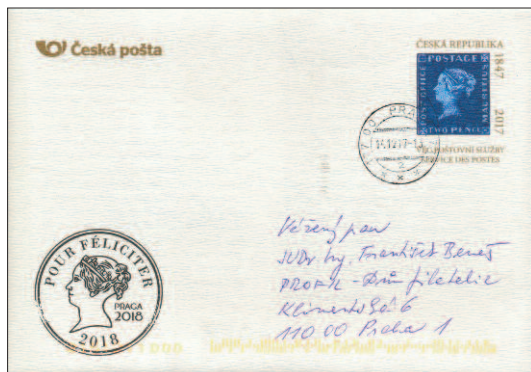 Česká pošta
ČESKÁ REPUBLIKA
1847 2017
POSTAGE
POST OFFICE
MAURITIUS
TWO PENCE
PRO POŠTOVNÍ SLUŽBY
SERVICE DES POSTES
PRAHA
POUR FÉLICITER
PRAGA
2018
2018
Vážený pan
JUDr Ing. František Beneš
PROFIL - Dům filatelie
Klimentská 6
110 00 Praha 1